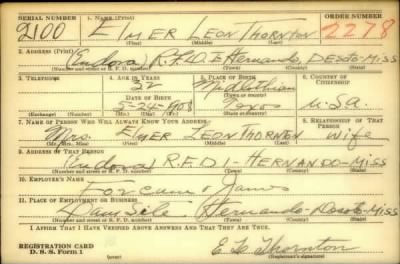 SERIAL NUMBER 1. NAME (Print) ORDER NUMBER
2100 ELMER LEON THORNTON 2278
(First) (Middle) (Last)
2. ADDRESS (Print)
Eudora R.F.D. Hernando Desoto-Miss
(Number and street or R. F. D. number) (Town) (County) (State)
3. TELEPHONE 4. AGE IN YEARS 5. PLACE OF BIRTH 6. COUNTRY OF CITIZENSHIP
32 Midlothian
DATE OF BIRTH (Town or county)
5-24-1908 Texas U.S.A.
(Exchange) (Number) (Mo.) (Day) (Yr.) (State or country)
7. NAME OF PERSON WHO WILL ALWAYS KNOW YOUR ADDRESS 8. RELATIONSHIP OF THAT PERSON
Mrs. ELMER LEON THORNTON Wife
(Mr., Mrs., Miss) (First) (Middle) (Last)
9. ADDRESS OF THAT PERSON
Eudora R.F.D 1-HERNANDO-MISS
(Number and street or R. F. D. number) (Town) (County) (State)
10. EMPLOYER'S NAME
James
11. PLACE OF EMPLOYMENT OR BUSINESS
Dam Site Hernando-Desoto-Miss
(Number and street or R. F. D. number) (Town) (County) (State)
I AFFIRM THAT I HAVE VERIFIED ABOVE ANSWERS AND THAT THEY ARE TRUE.
REGISTRATION CARD
D. S. S. Form 1 E L Thornton
(Registrant's signature)